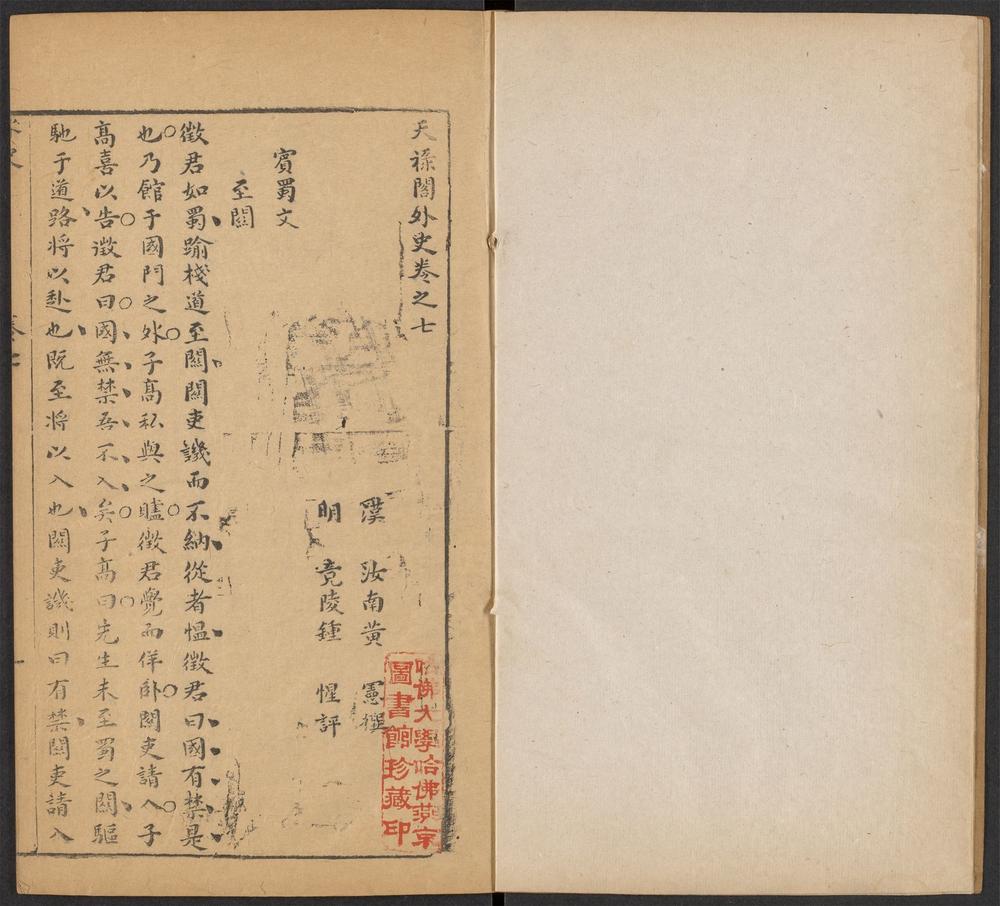 天祿閣外史卷之七
漢　汝南黃　憲撰
明　竟陵鍾　惺評
賓蜀文
至關
徵君如蜀踰棧道至關關吏譏而不納從者慍徵君曰國有禁是
也乃館于國門之外子髙私與之驢徵君覺而佯卧關吏請入子
髙喜以告徵君曰國無禁吾不入矣子髙曰先生未至蜀之關驅
馳于道路將以赴也既至將以入也關吏譏則曰有禁關吏請入
哈佛大學哈佛燕京
圖書館珍藏印